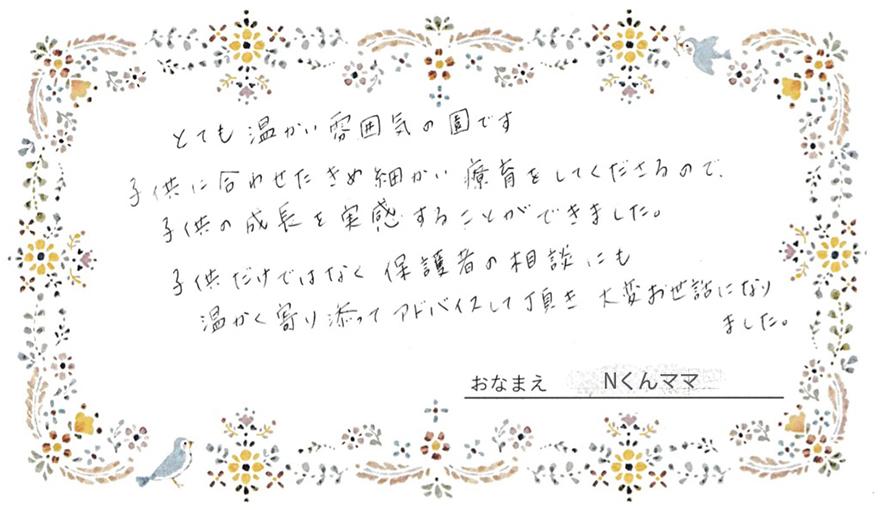 とても温かい雰囲気の園です
子供に合わせたきめ細かい療育をしてくださるので、
子供の成長を実感することができました。
子供だけではなく保護者の相談にも
温かく寄り添ってアドバイスして頂き大変お世話になり
ました。
おなまえ Nくんママ